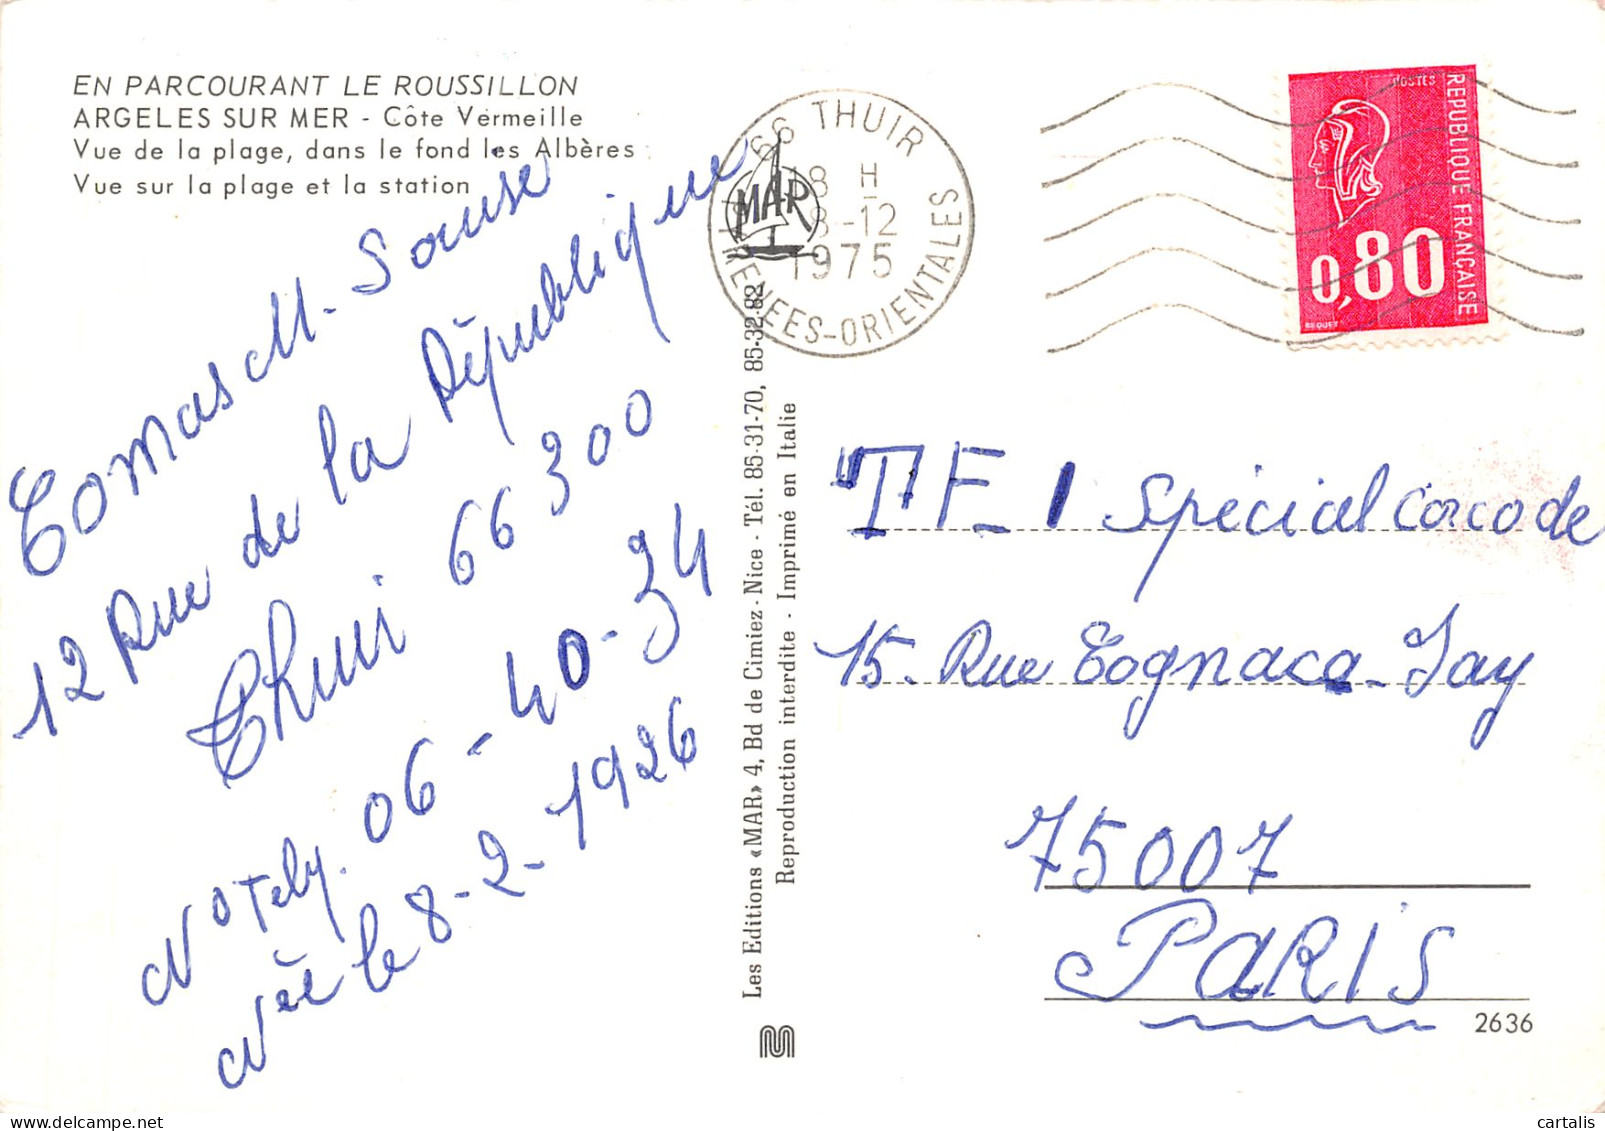 EN PARCOURANT LE ROUSSILLON
ARGELES SUR MER - Côte Vermeille
Vue de la plage, dans le fond les Albères
Vue sur la plage et la station
Tomas M. Louise
12 Rue de la République
Thuir 66300
N° Tely. 06-40-34
Née le 8-2-1926
66 THUIR
18 H
8-12
1975
PYRENEES-ORIENTALES
MAR
POSTES
REPUBLIQUE FRANÇAISE
0,80
BEQUET
Les Editions «MAR» 4, Bd de Cimiez - Nice - Tél. 85-31-70, 85-32-82
Reproduction interdite - Imprimé en Italie
TF 1 Spécial Cocode
15. Rue Cognacq-Jay
75007
PARIS
2636
cartalis